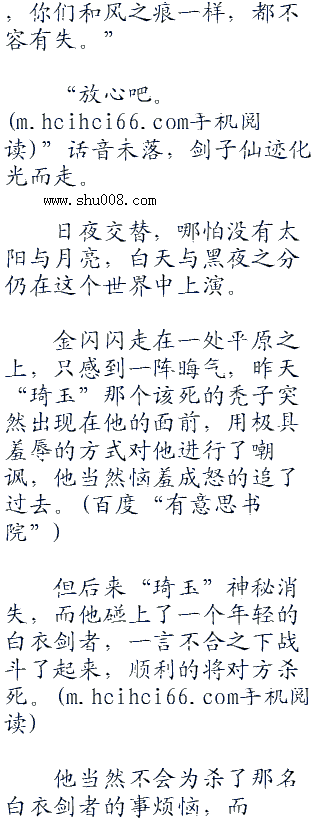 ，你们和风之痕一样，都不
容有失。”
“放心吧。
(m.hcihci66.com手机阅
读)”话音未落，剑子仙迹化
光而走。
www.shu008.com
日夜交替，哪怕没有太
阳与月亮，白天与黑夜之分
仍在这个世界中上演。
金闪闪走在一处平原之
上，只感到一阵晦气，昨天
“琦玉”那个该死的秃子突
然出现在他的面前，用极具
羞辱的方式对他进行了嘲
讽，他当然恼羞成怒的追了
过去。(百度“有意思书
院”)
但后来“琦玉”神秘消
失，而他碰上了一个年轻的
白衣剑者，一言不合之下战
斗了起来，顺利的将对方杀
死。(m.hcihci66.com手机阅
读)
他当然不会为杀了那名
白衣剑者的事烦恼，而